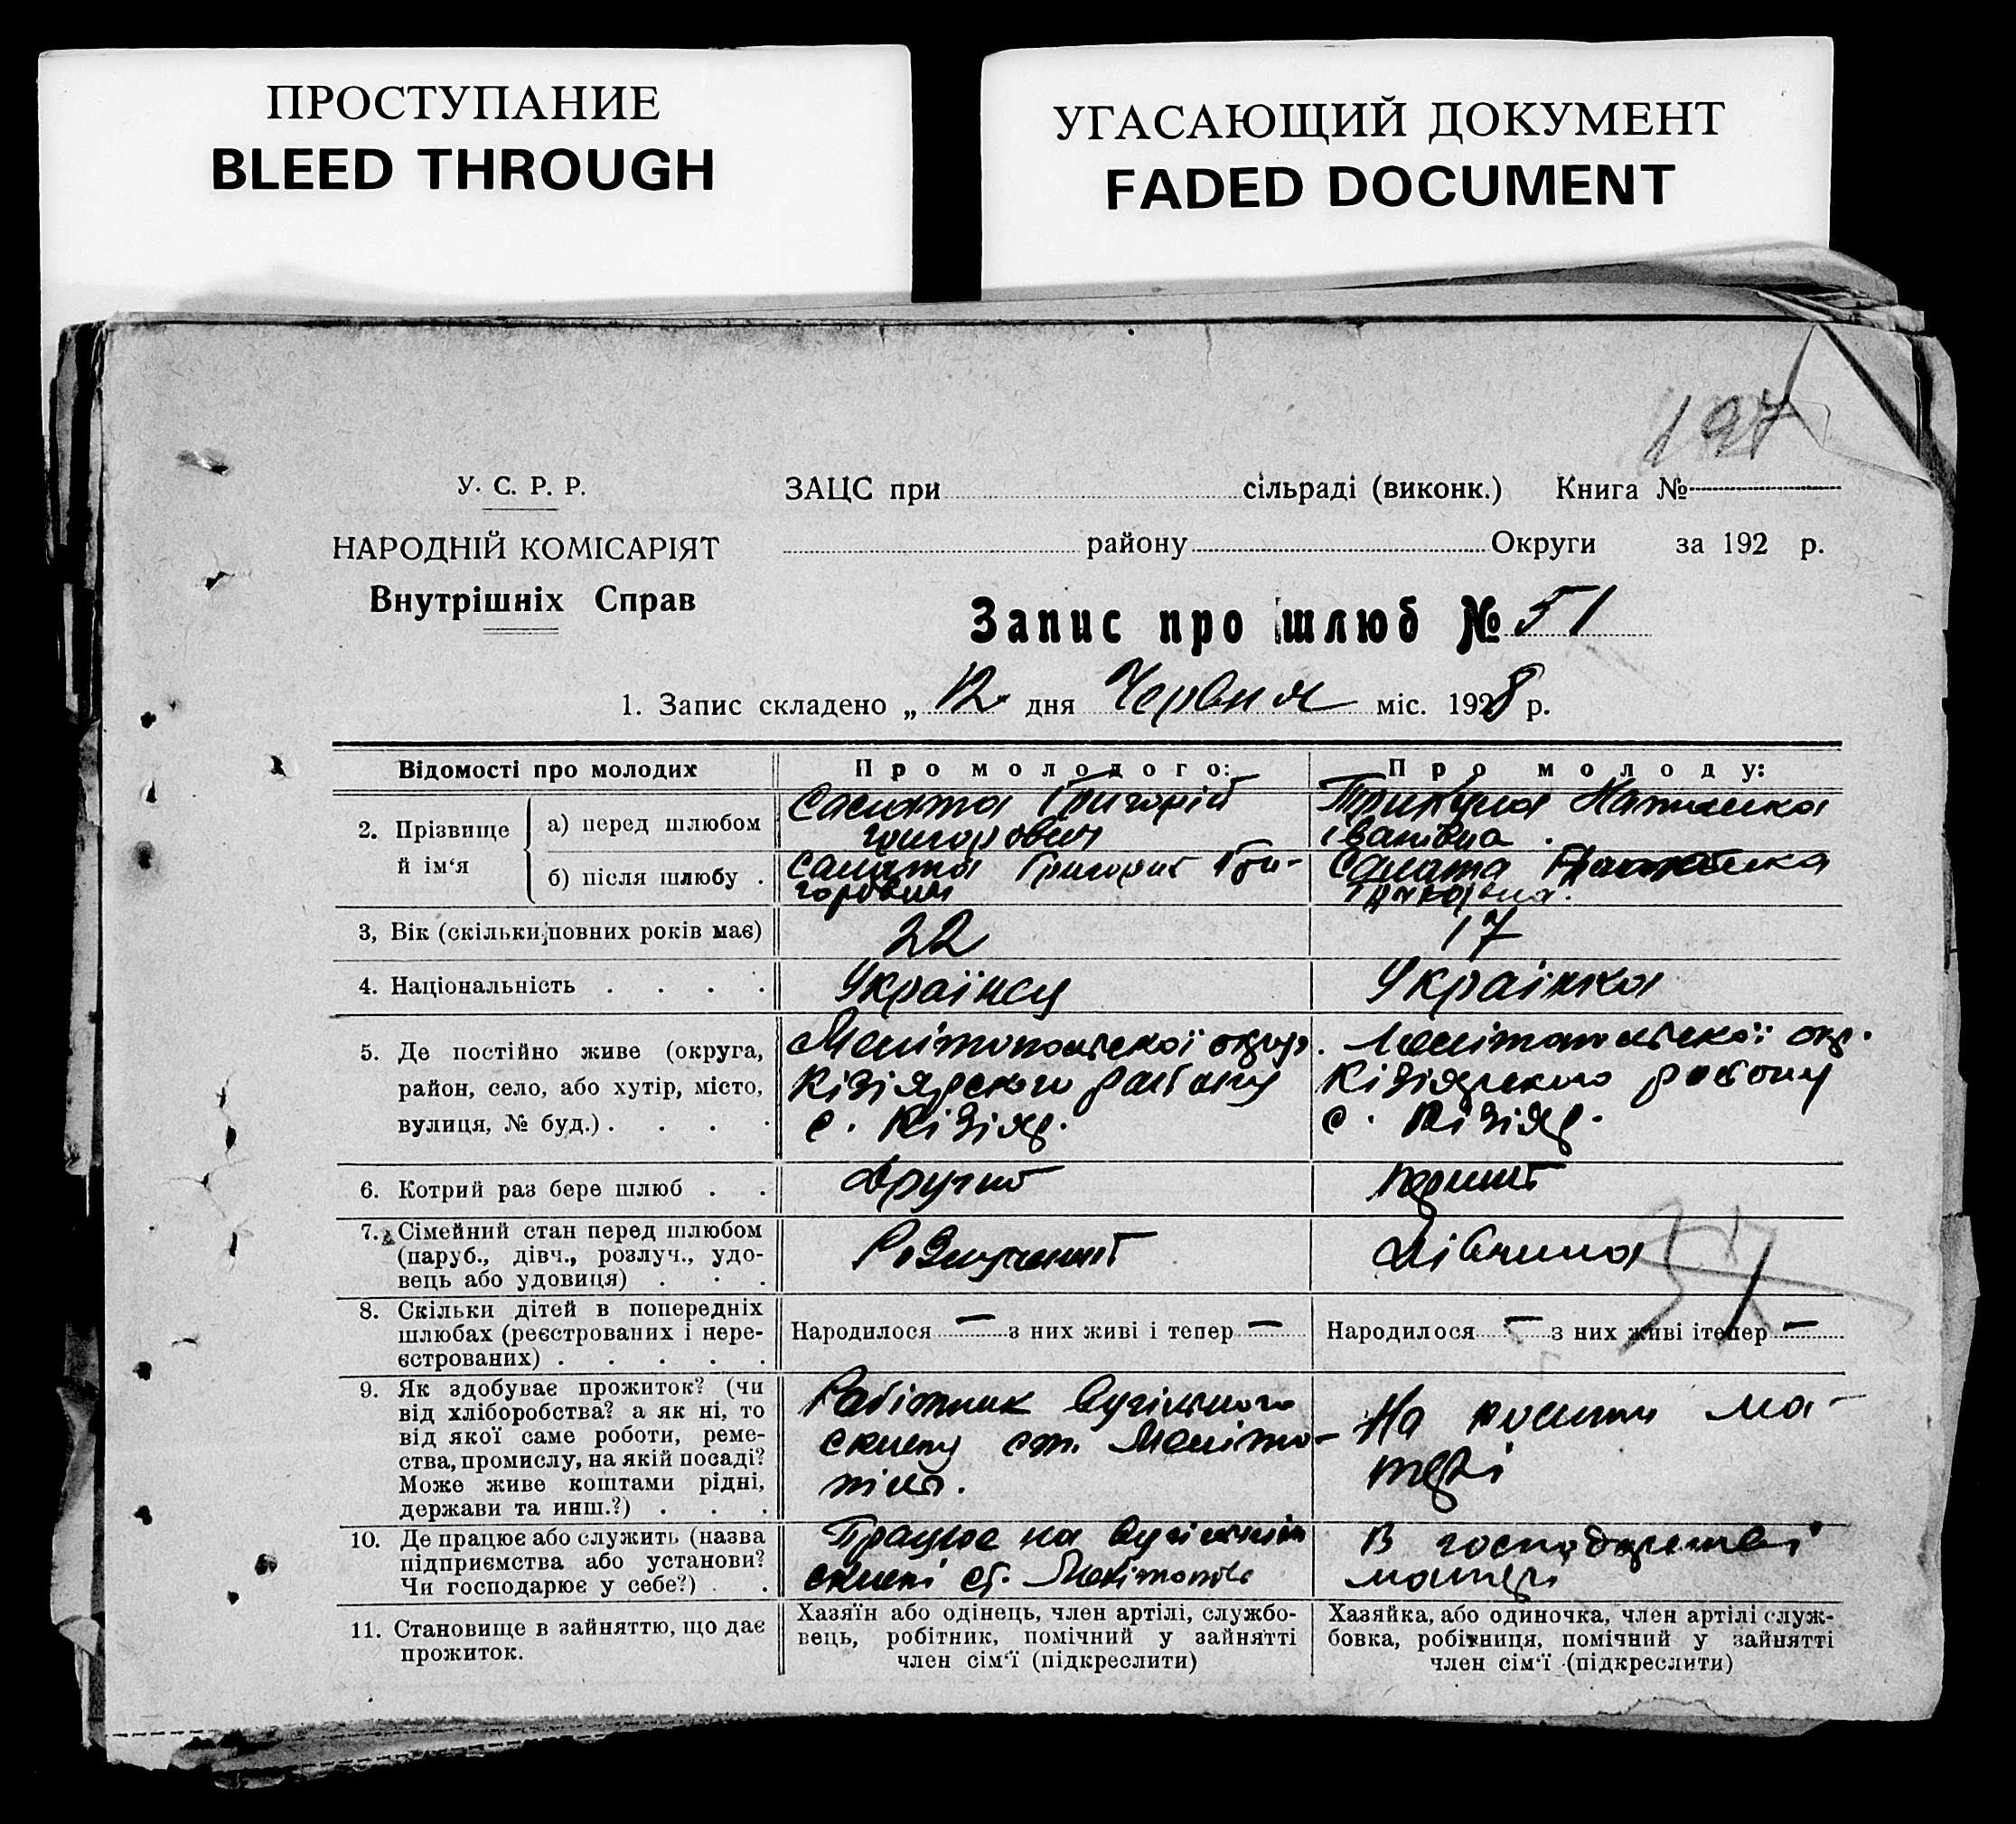 ПРОСТУПАНИЕ
BLEED THROUGH
УГАСАЮЩИЙ ДОКУМЕНТ
FADED DOCUMENT
197
У. С. Р. Р.
НАРОДНІЙ КОМІСАРІЯТ
Внутрішніх Справ
ЗАЦС при сільраді (виконк.) Книга №
району Округи за 192 р.
Запис про шлюб № 51
1. Запис складено „ 12 дня Червня міс. 1928 р.
Відомості про молодих
Про молодого:
Про молоду:
2. Прізвище
й ім'я
а) перед шлюбом
Григорій
Григорович
Наталка
Іванівна.
б) після шлюбу .
Салата Григорий Гри-
горович
Салата
3, Вік (скільки повних років має)
22
17
4. Національність . . . .
Українец
Українка
5. Де постійно живе (округа,
район, село, або хутір, місто,
вулиця, № буд.) . . . .
Мелітопольскої округ.
Кізіярського району
с. Кізіяр.
Мелітопольскої окр.
Кізіярського району
с. Кізіяр.
6. Котрий раз бере шлюб . .
Другий
Перший
7. Сімейний стан перед шлюбом
(паруб., дівч., розлуч., удо-
вець або удовиця) . . .
Розлучений
Дівчина
8. Скільки дітей в попередніх
шлюбах (реєстрованих і нере-
єстрованих) . . . . .
Народилося — з них живі і тепер —
Народилося — з них живі ітепер —
9. Як здобуває прожиток? (чи
від хліборобства? а як ні, то
від якої саме роботи, реме-
ства, промислу, на якій посаді?
Може живе коштами рідні,
держави та инш.?) . . .
Робітник Вугільного
складу ст. Меліто-
піль.
На ма-
тері
10. Де працює або служить (назва
підприємства або установи?
Чи господарює у себе?) . .
Працює на Вугільнім
складі ст. Мелітопіль
В господарстві
матері
11. Становище в зайняттю, що дає
прожиток.
Хазяїн або одінець, член артілі, службо-
вець, робітник, помічний у зайнятті
член сім'ї (підкреслити)
Хазяйка, або одиночка, член артілі служ-
бовка, робітниця, помічний у зайнятті
член сім'ї (підкреслити)